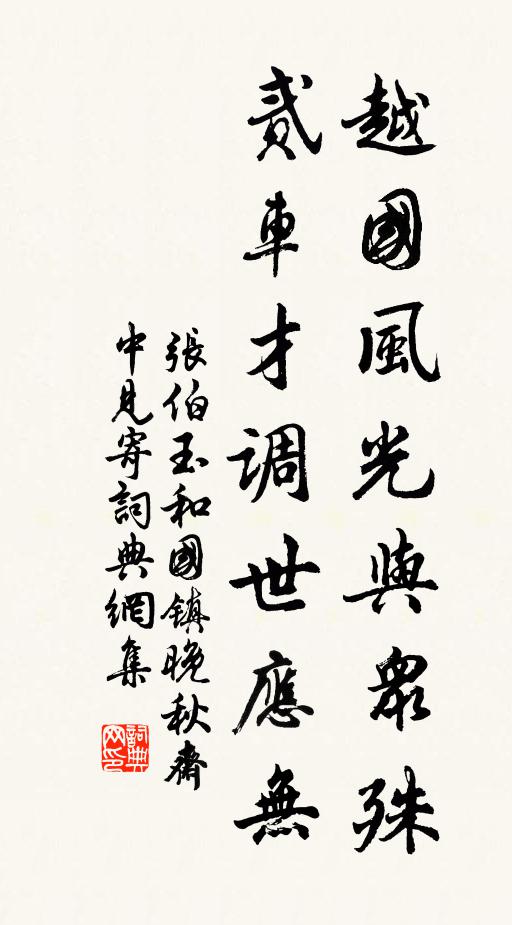 越國風光與眾殊
貳車才調世應無
張伯玉和國鎮晚秋齋
中見寄詞典網集
詞典
网印